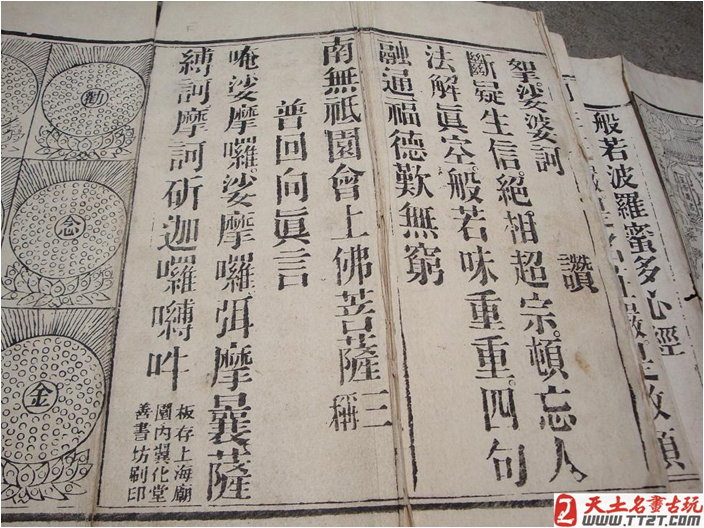 般若波羅蜜多心經
挐娑婆訶
讚
斷疑生信絕相超宗頓忘人
法解眞空般若味重重四句
融通福德歎無窮
南無祇園會上佛菩薩三稱
普回向眞言
唵娑摩囉娑摩囉弭摩曩薩
縛訶摩訶斫迦囉嚩吽
板存上海廟
園内翼化堂
善書坊刷印
勸
念
金
天土名畫古玩
www.TT2T.com